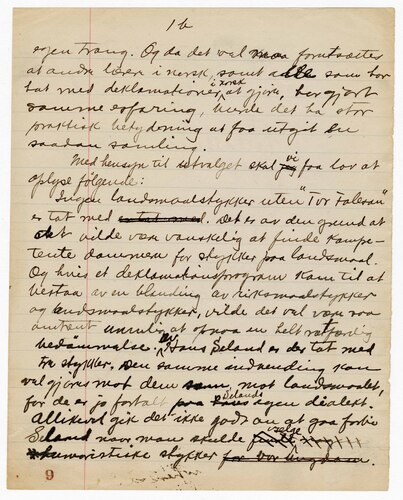 1 b
egen trang. Og da det vel maa forutsætter
at andre lærere i norsk, samt alle som har
i norsk
hat med deklamationer at gjøre, har gjort
samme erfaring, burde det ha stor
praktisk betydning at faa utgit en
saadan samling.
Med hensyn til utvalget skal vi faa lov at
oplyse følgende:
Ingen landsmaalstykker uten "Tor Talesin"
er tat med. Det er av den grund at
det vilde være vanskelig at finde kompe-
tente dommere for stykker paa landsmaal.
Og hvis et deklamationsprogram kom til at
bestaa av en blanding av riksmaalstykker
og landsmaalstykker, vilde det vel være
omtrent umulig at opnaa en helt retfærdig
bedømmelse. Av Hans Seland er der tat med
tre stykker. Den samme indvending kan
vel gjøres mot dem som mot landsmaalet,
for de er jo fortalt paa Selands egen dialekt.
Allikevel gik det ikke godt an at gaa forbi
Seland naar man skulde vælge
humoristiske stykker for vor ungdom.
9